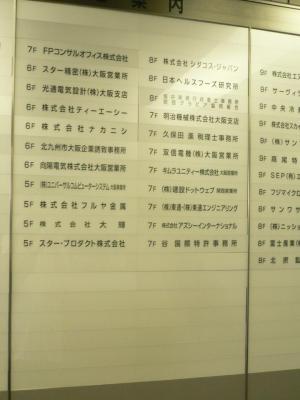 案内
7F FPコンサルオフィス株式会社
6F スター精密(株)大阪営業所
6F 光通電気設計(株)大阪支店
6F 株式会社ティーエーシー
6F 株式会社ナカニシ
6F 北九州市大阪企業誘致事務所
6F 向陽電気株式会社大阪営業所
5F (株)ユニバーサルコムピューターシステム 大阪事業所
5F 株式会社フルヤ金属
5F 株式会社大輝
5F スター・プロダクト株式会社
8F 株式会社シダコス・ジャパン
8F 日本ヘルスフーズ研究所
8F
7F 明治機械株式会社大阪支店
7F 久保田薫税理士事務所
7F 双信電機(株)大阪営業所
7F キムラユニティー株式会社
7F (株)建設ドットウェブ 関西営業所
7F (株)東通・(株)東通エンジニアリング
7F 株式会社アズシーインターナショナル
7F 谷国際特許事務所
9F 株式会社
9F サーヴィ
9F 中央
9F 株式会社スカイ
9F (株)サン
9F
9F SEP(有)
8F フジマイクロ
8F サンワサ
8F (株)ニッショ
8F 富士産業(株)
8F 北原